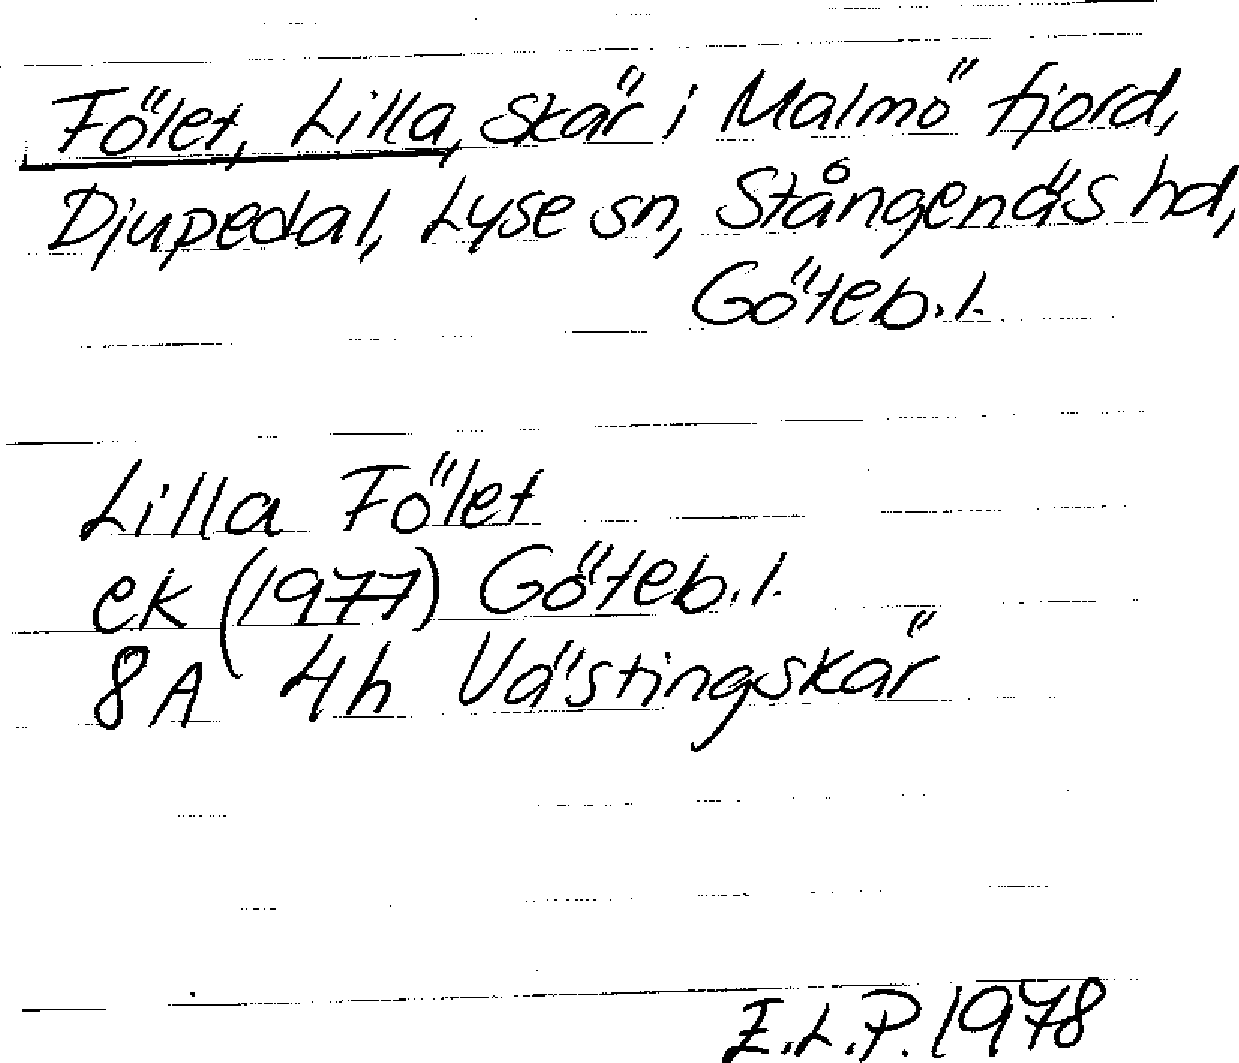 Fölet, Lilla, Skär i Malmö fjord,
Djupedal, Lyse sn, Stångenäs hd,
Göteb.l.
Lilla Fölet
ek (1977) Göteb.l.
8A 4h Västingskär
E.L.P. 1978